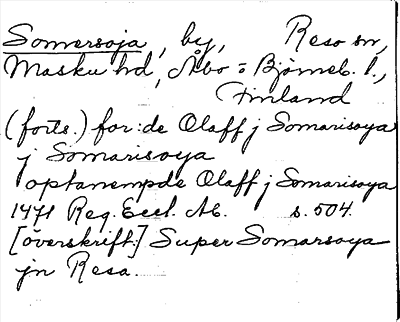 Somersoja, by, Reso sn,
Masku hd, Åbo = Björneb. l.,
Finland
(forts.) for:de Olaff j Somarisoya
j Somarisoya
optanempde Olaff j Somarisoya
1471 Reg. Eccl. Ab. s. 504.
[överskrift:] Super Somarsoya
jn Resa.